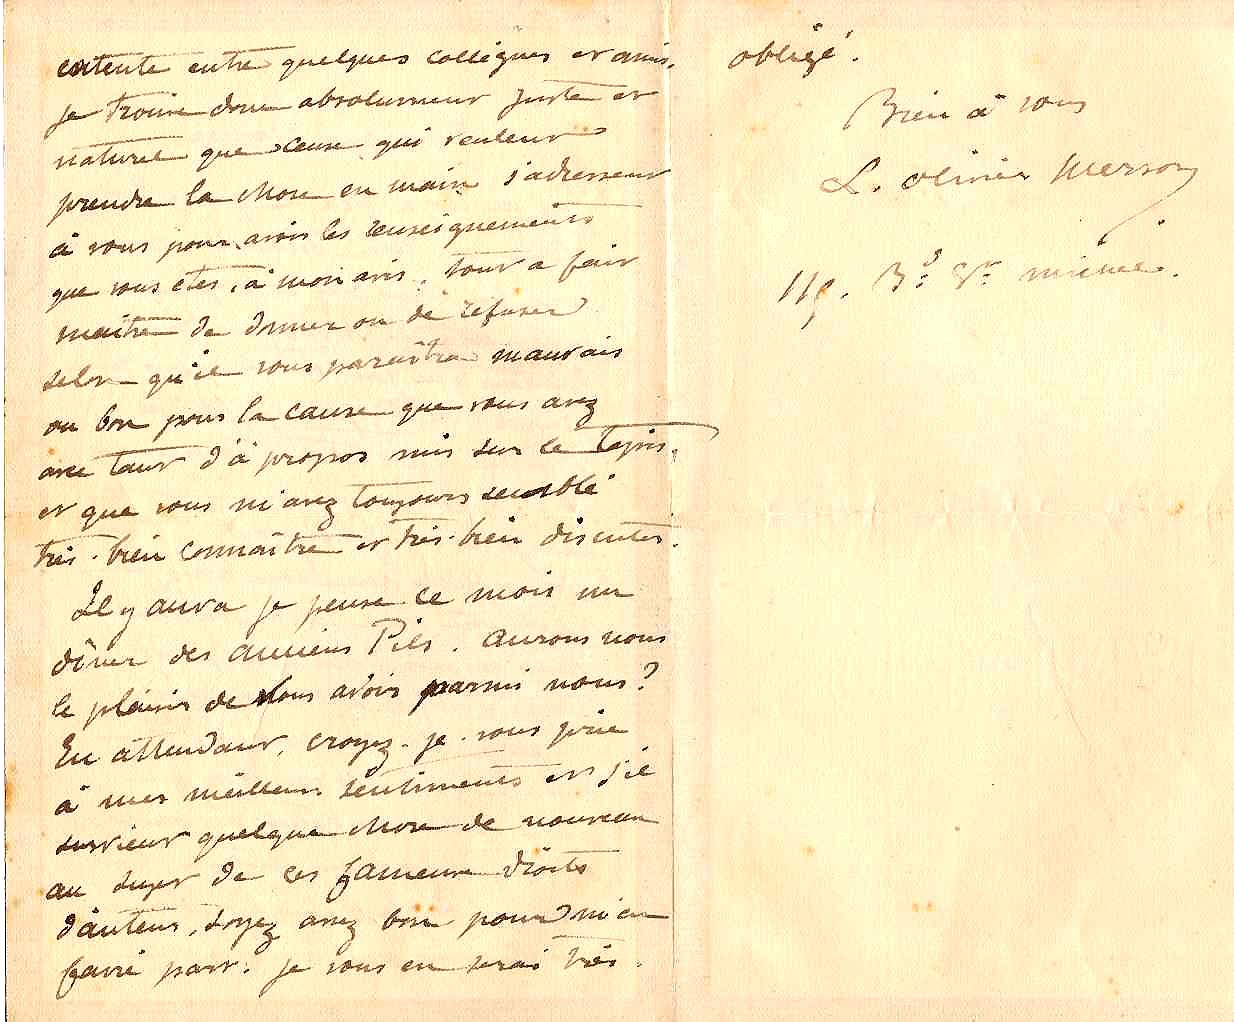 entente entre quelques collègues et amis.
Je trouve donc absolument juste et
naturel que ceux qui veulent
prendre la chose en main s'adressent
à vous pour avoir les renseignements
que vous êtes, à mon avis, tout a fait
maître de donner ou de refuser
selon qu'il vous paraîtra mauvais
ou bon pour la cause que vous avez
avec tant d'à propos mis sur le tapis.
et que vous m'avez toujours semblé
très-bien connaître et très-bien discuter.
Il y aura je pense ce mois un
dîner des anciens Pils. Aurons nous
le plaisir de vous avoir parmi nous?
En attendant, croyez-je vous prie
à mes meilleurs sentiments et s'il
survient quelque chose de nouveau
au sujet de ces fameux droits
d'auteur, soyez assez bon pour m'en
faire part. Je vous en serai très.
obligé.
Bien à vous
L. Olivier Merson
Bd St michel.